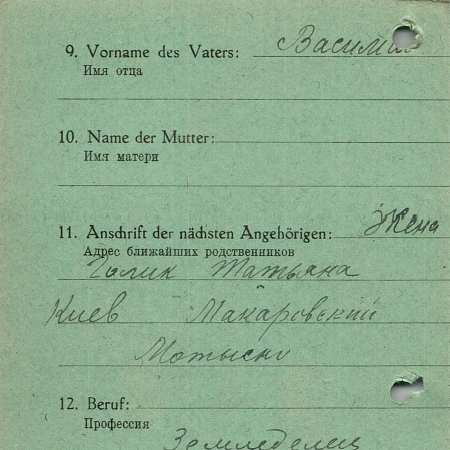 9. Vorname des Vaters: Василий
Имя отца
10. Name der Mutter:
Имя матери
11. Anschrift der nächsten Angehörigen: Жена
Адрес ближайших родственников
Голик Татьяна
Киев Макаровский
12. Beruf:
Профессия
Земледелец